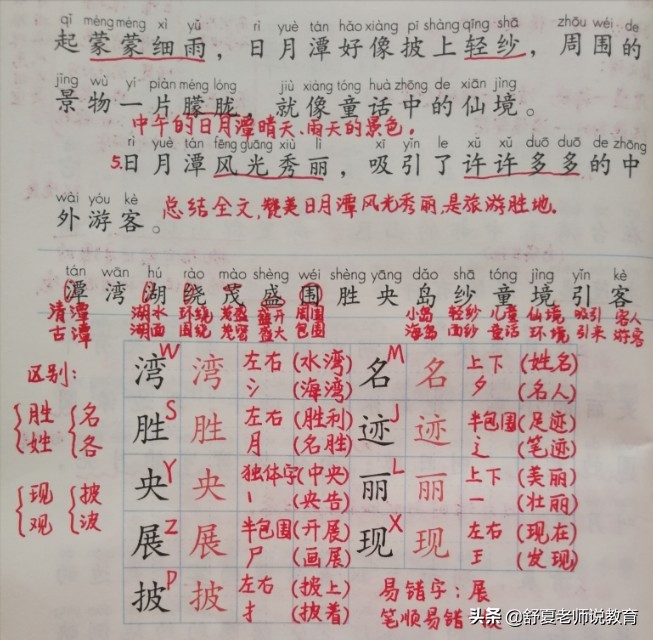 qǐ méng méng xì yǔ rì yuè tán hǎo xiàng pī shàng qīng shā zhōu wéi de
起蒙蒙细雨，日月潭好像披上轻纱，周围的
jǐng wù yí piàn méng lóng jiù xiàng tóng huà zhōng de xiān jìng
景物一片朦胧，就像童话中的仙境。
中午的日月潭晴天、雨天的景色。
rì yuè tán fēng guāng xiù lì xī yǐn le xǔ xǔ duō duō de zhōng
5.日月潭风光秀丽，吸引了许许多多的中
wài yóu kè
外游客。 总结全文,赞美日月潭风光秀丽,是旅游胜地。
tán wān hú rào mào shèng wéi shèng yāng dǎo shā tóng jìng yǐn kè
潭湾湖绕茂盛围胜央岛纱童境引客
清潭 湖水 环绕 茂盛 盛开 周围 小岛 轻纱 儿童 仙境 吸引 客人
古潭 湖面 围绕 茂密 盛大 包围 海岛 面纱 童话 环境 引来 游客
湾 W 湾 左右 (水湾) 名 M 名 上下 (姓名)
氵 (海湾) 夕 (名人)
区别:
胜 名
姓 各
胜 S 胜 左右 (胜利) 迹 J 迹 半包围 (足迹)
月 (名胜) 辶 (笔迹)
央 Y 央 独体字 (中央) 丽 L 丽 上下 (美丽)
丨 (央告) 一 (壮丽)
现 披
观 波
展 Z 展 半包围 (开展) 现 X 现 左右 (现在)
尸 (画展) 王 (发现)
披 P 披 左右 (披上) 易错字:展
扌 (披着) 笔顺易错
头条 @舒夏老师说教育